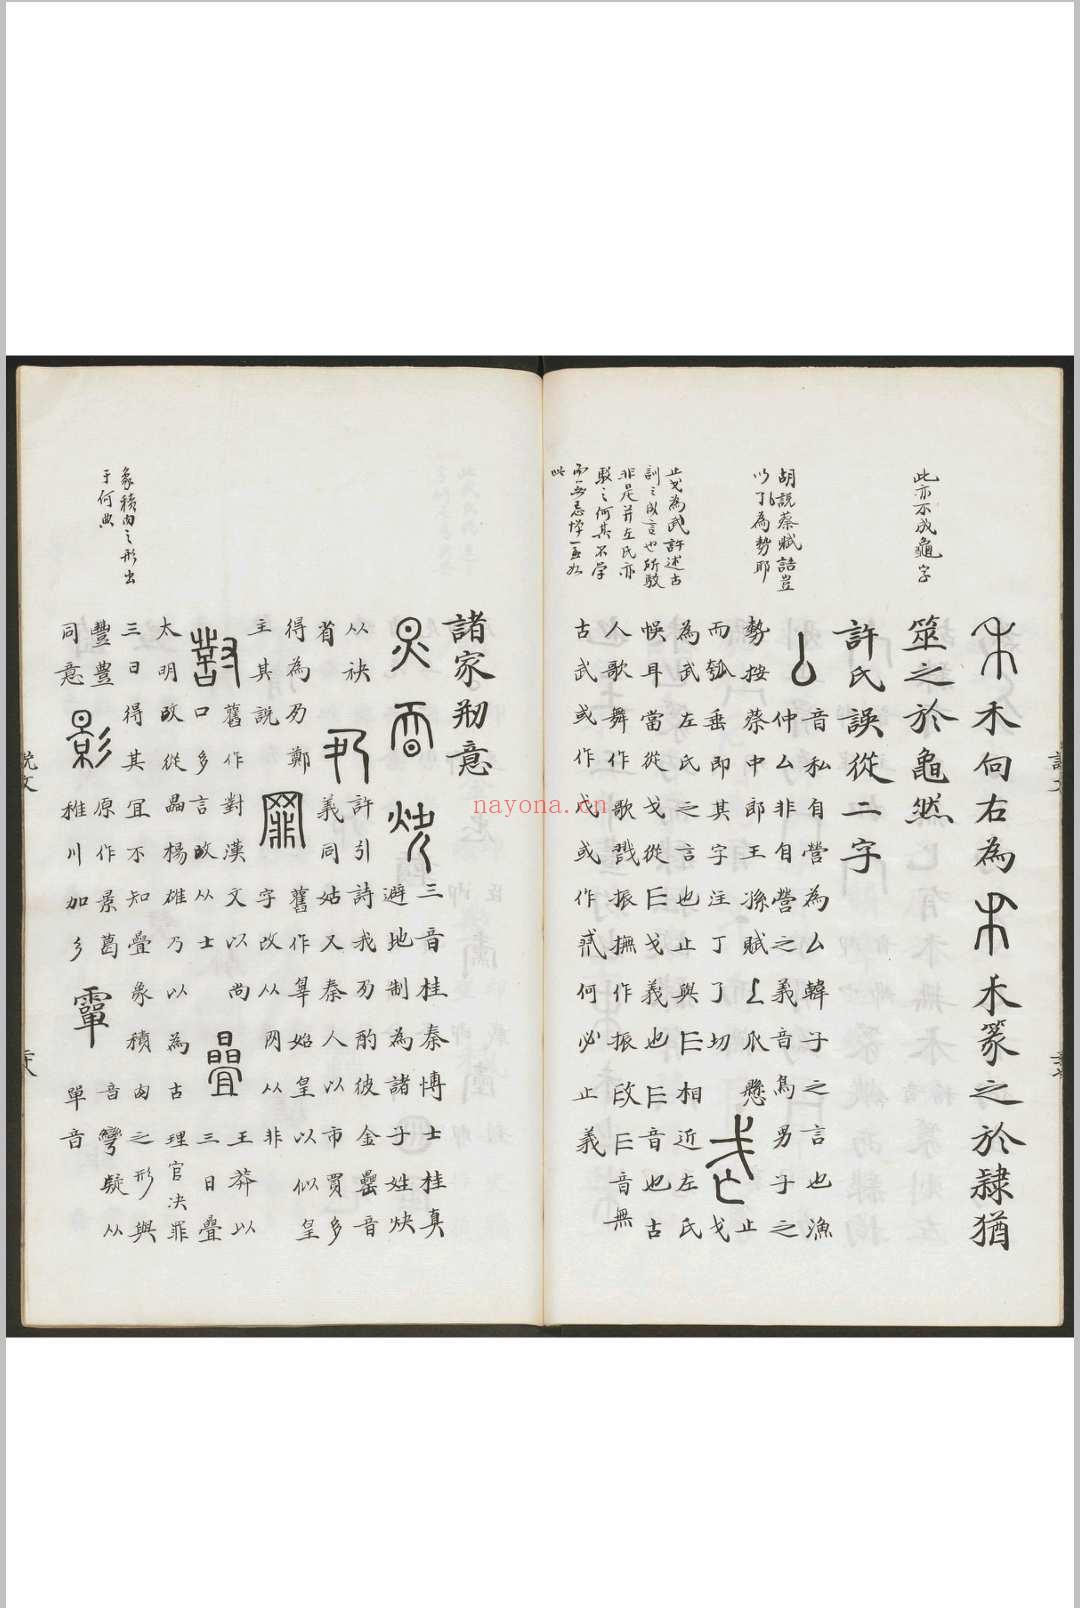 此亦不成龜字
胡說蔡賦詰豈
以了為勢耶
止戈為武許述古
訓之成言也所駁
非是并左氏亦
駁之何其不學
而無忌憚一至於
此
禾向右為 木篆之於隸猶
筮之於龜然
許氏誤從二字
音私自營為厶韓子之言也漁
仲厶非自營之義音鳥男子之
勢按蔡中郎王孫賦 爪懸 止
而瓠垂即其字注丁了切 戈
為武左氏之言也止與亡相近左氏
悮耳當從戈從亡戈義也亡音也古
人歌舞作歌戲振撫作振改亡音無
古武或作戊或作 何必止義
諸家剏意
三音桂秦博士桂真
避地制為諸子姓炔
从袂 許引詩我 酌彼金罍音
省 義同姑又秦人以市買多
得為夃鄭 舊作辠始皇以似皇
主其說 字改从网从非
舊作對漢文以尚 王莽以
口多言改从士 三日疊
太明改從晶楊雄乃以為古理官决罪
三日得其宜不知疊象積肉之形與
豐豊 原作景葛 音彎疑从
同意 稚川加彡 單音
象積肉之形出
于何典
說文
nayona.cn